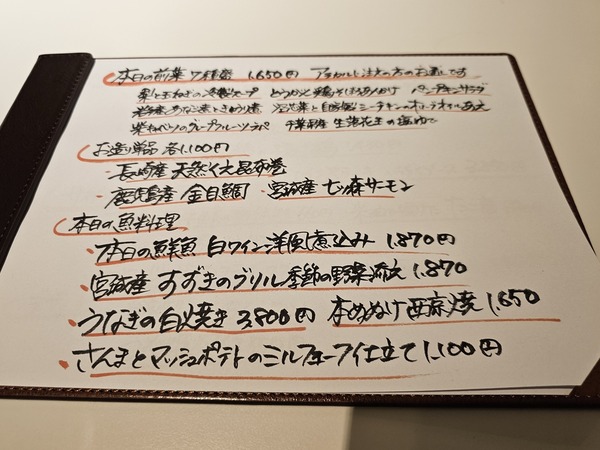 本日の前菜7種盛 1,650円 アラカルト注文の方のお通しです
梨と玉ねぎの冷製スープ とうがんと鶏そぼろあんかけ バーニャサラダ
きゅうり 沼津 菜と自家製シーチキンの あえ
紫キャベツのグレープフルーツラペ 千葉県産 生落花生の塩ゆで
お造り単品 各1,100円
・長崎産 天然ひらめ昆布巻
・鹿児島産 金目鯛 ・宮城産 七ツ森サーモン
本日の魚料理
・本日の鮮魚 白ワイン洋風煮込み 1,870円
・宮城産 すずきのグリル 季節の野菜添え 1,870
・うなぎの白焼き 3,800円 本ぬぬけ西京焼 1,650
・さんまとマッシュポテトのミルフィーユ仕立て 1,100円